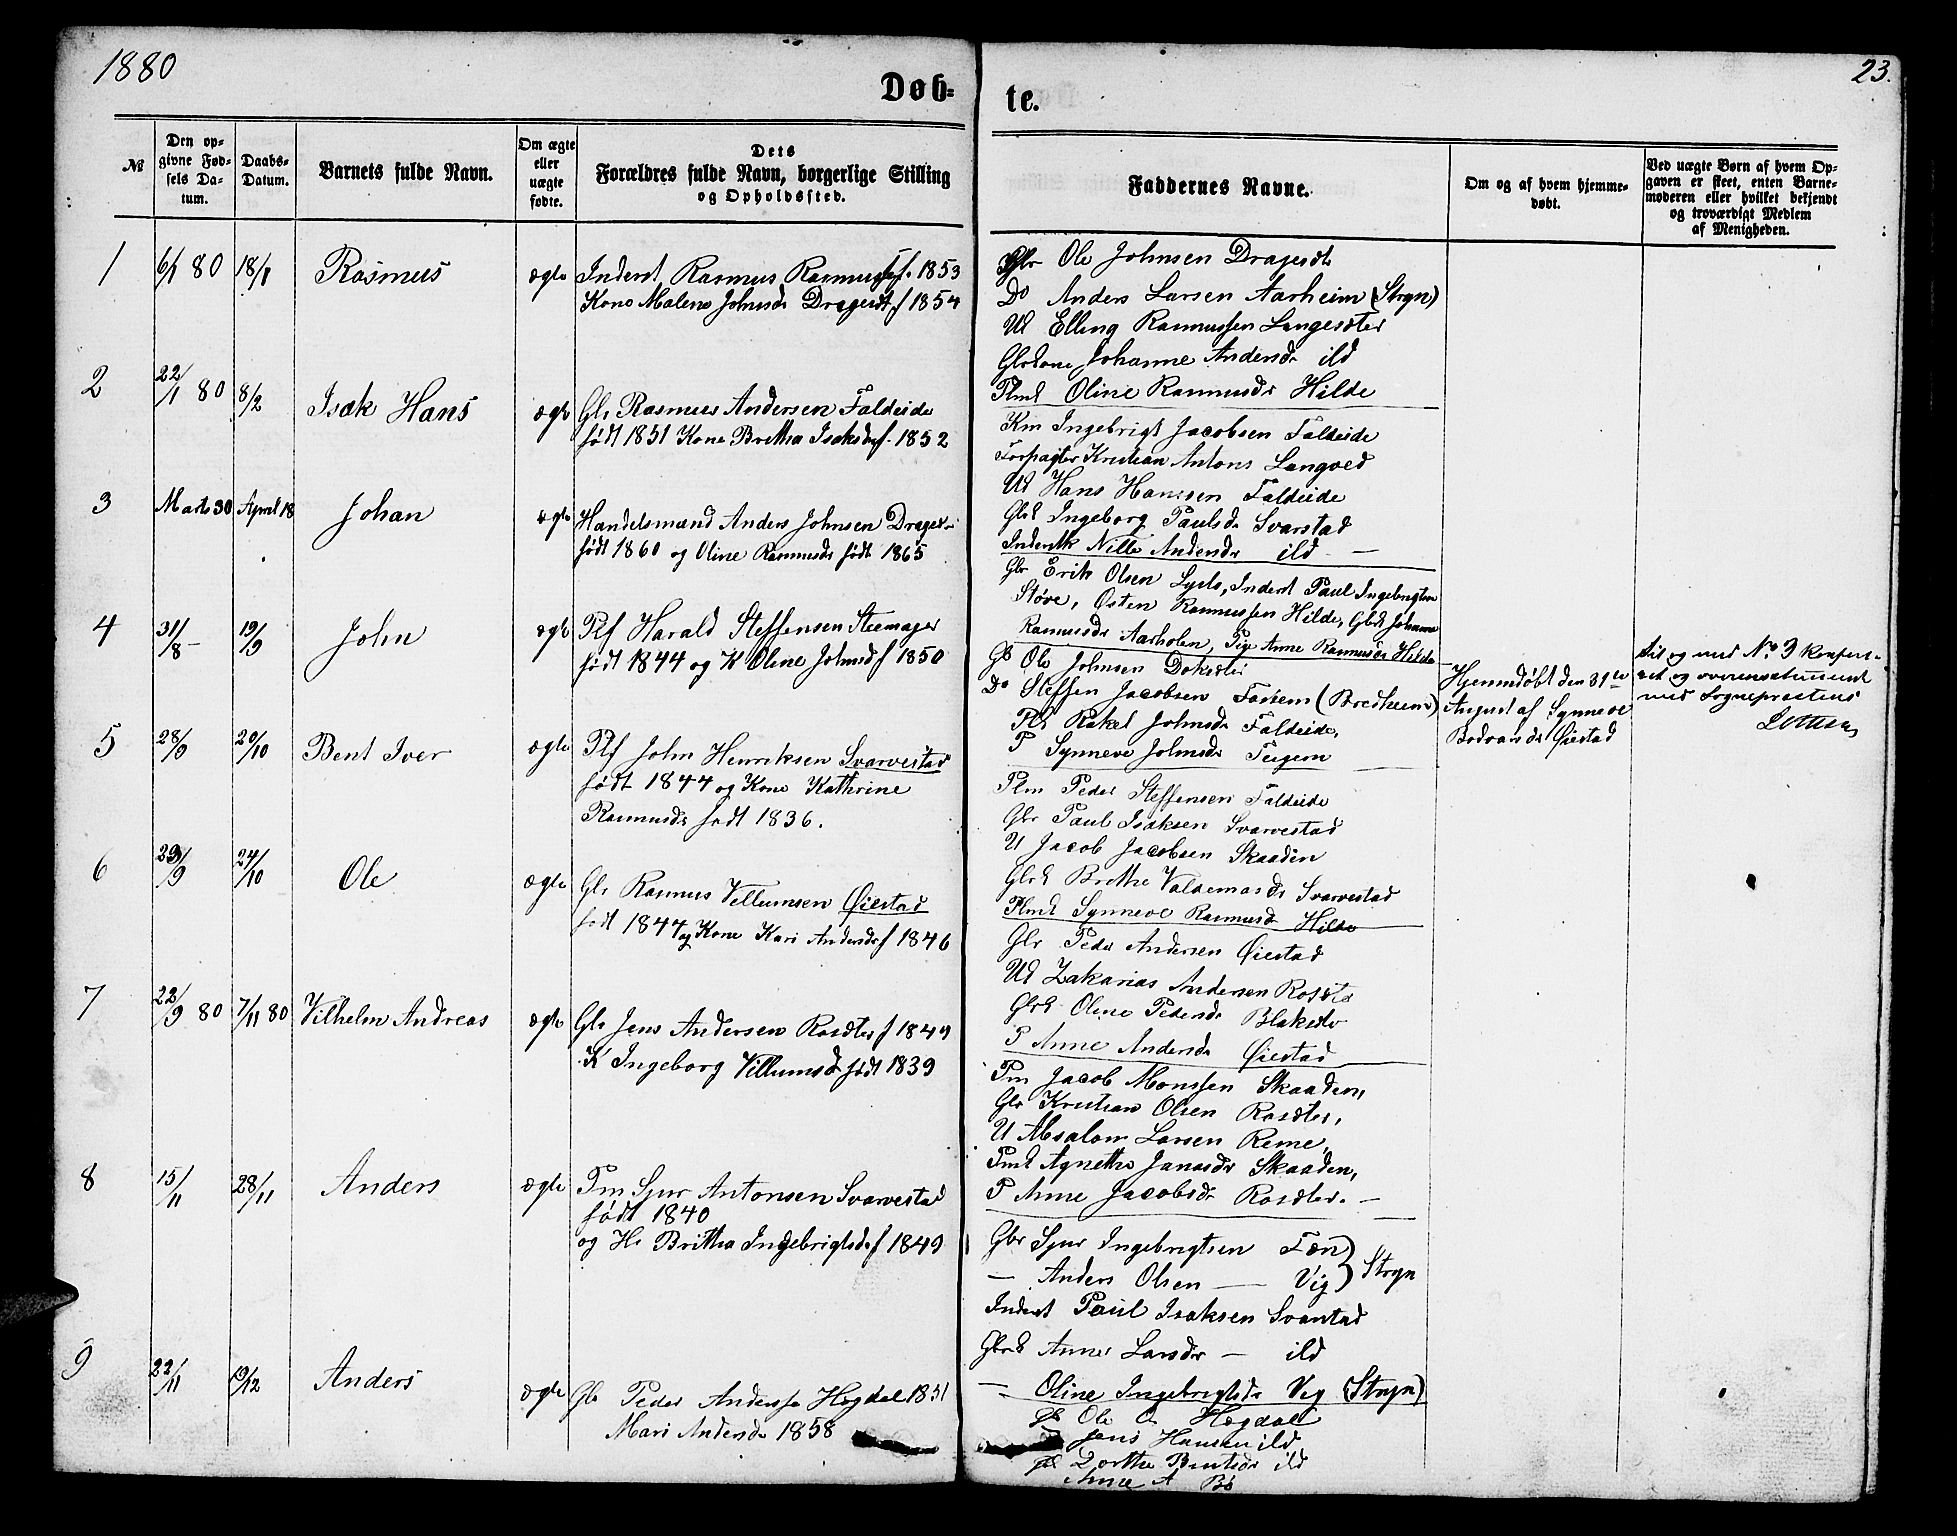 1880
23.
Døb=
te.
№
Den op=
givne Fød=
sels Da=
tum.
Daabs=
Datum.
Barnets fulde Navn.
Om ægte
eller
uægte
fødte.
Dets
Forældres fulde Navn, borgerlige Stilling
og Opholdssted.
Faddernes Navne.
Om og af hvem hjemme=
døbt.
Ved uægte Børn af hvem Op=
gaven er skeet, enten Barne=
moderen eller hvilket bekjendt
og troværdigt Medlem
af Menigheden.
1
6/1 80
18/1
Rasmus
ægte
Inderst Rasmus Rasmuss f. 1853
Kone Malene Johnsdr Dragesdt f 1854
Gbr Ole Johnsen Dragesdt
Do Anders Larsen Aarheim (Stryn)
Ud Elling Rasmussen Langesæter
Gbrkone Johanne Andersdr ild
Plmd Oline Rasmusdr Hilde
2
22/1 80
8/2
Isak Hans
ægte
Gbr Rasmus Andersen Faldeide
født 1851 Kone Bretha Isaksdr f. 1852
Km Ingebrigt Jacobsen Faldeide
Forpagter Kristian Antons Langved
Ud Hans Hanssen Faldeide
Gbrk Ingeborg Paulsdr Svarstad
Inderstk Nille Andersdr ild —
3
Marts 30
April 18
Johan
ægte
Handelsmand Anders Johnsen Drages
født 1860 og Oline Rasmusdr født 1865
Gbr Erik Olsen Lyslo, Inderst Paul Ingebrigtsen
Støve, Østen Rasmussen Hilde, Gbrk Johanne
Rasmusdr Aarholen, Pige Anne Rasmusdr Hilde
4
31/8 —
19/9
John
ægte
Plf Harald Steffensen Steemager
født 1844 og K Oline Johnsd f 1850
Gb Ole Johnsen Doksæter
Do Steffen Jacobsen Fosnem (Bredheim)
Plk Rakel Johnsdr Faldeide,
P Synneve Johnsdr Teigem
Hjemmdøbt den 31te
August af Synneve
Bodvarsdr Øiestad
til og med No 9 konfere-
ret og overensstemmend
med Sognepræstens
5
28/9
20/10
Bent Iver
ægte
Plf John Henriksen Svarvestad
født 1844 og Kone Kathrine
Rasmusdr født 1836.
Plm Peder Steffensen Faldeide
Gbr Paul Isaksen Svarvestad
U Jacob Jacobsen Skaaden
Gbrk Brethe Valdemarsdr Svarvestad
Plmd Synneve Rasmusdr Hilde
6
29/9
24/10
Ole
ægte
Gbr Rasmus Villumsen Øiestad
født 1844 og Kone Kari Andersdr f 1846
Gbr Peder Andersen Øiestad
Ud Zakarias Andersen Rosdte
Gbrk Oline Pedersdr Blaksdtr
P Anne Andersdr Øiestad
7
22/9 80
7/11 80
Vilhelm Andreas
ægte
Gbr Jens Andersen Rosdter f 1849
K Ingeborg Villumsd født 1839
Pm Jacob Monssen Skaaden,
Gbr Kristian Olsen Rosdter,
U Absalom Larsen Reme,
Pmk Agnethe Janasdr Skaaden,
P Anne Jacobsdr Rosdter. —
8
15/11
28/11
Anders
ægte
Pm Sjur Antonsen Svarvestad
født 1840
og H. Britha Ingebrigtsd f 1849
Gbr Sjur Ingebrigtsen Fæn) Stryn
— Anders Olsen — Vig)
Inderst Paul Isaksen Svarstad
Gbrk Anne Larsdr — ild
— Oline Ingebrigtsdr Vig (Stryn)
9
22/11
19/12
Anders
ægte
Gbr Peder Anderss Høgdal 1851
Mari Andersdr 1858
Gb Ole O Høgdal
Jens Hansen ild
Dorthe Bentsdr ild
Anne A Bø